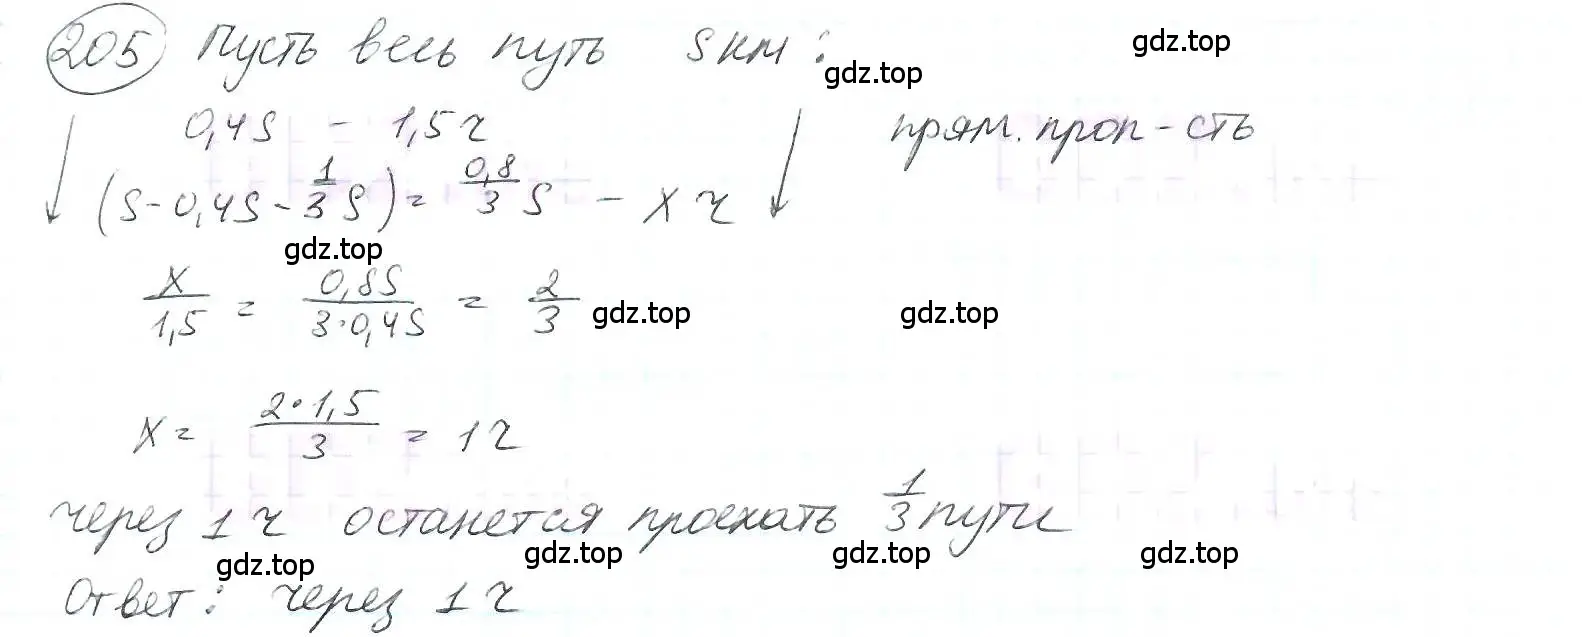 205 Пусть весь путь S км: gdz.top gdz.top
0,4S - 1,5 ч прям. проп-сть
(S - 0,4S - 1/3 S) = 0,8/3 S - x ч
gdz.top
x/1,5 = 0,8S/3·0,4S = 2/3 gdz.top gdz.top
x = 2·1,5/3 = 1 ч
через 1 ч останется проехать 1/3 пути
gdz.top gdz.top gdz.top gdz.top
Ответ: через 1 ч